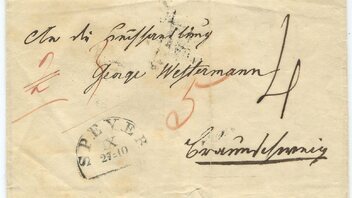 An die Buchhandlung
George Westermann
4
5
SPEYER
X
27-10
Braunschweig